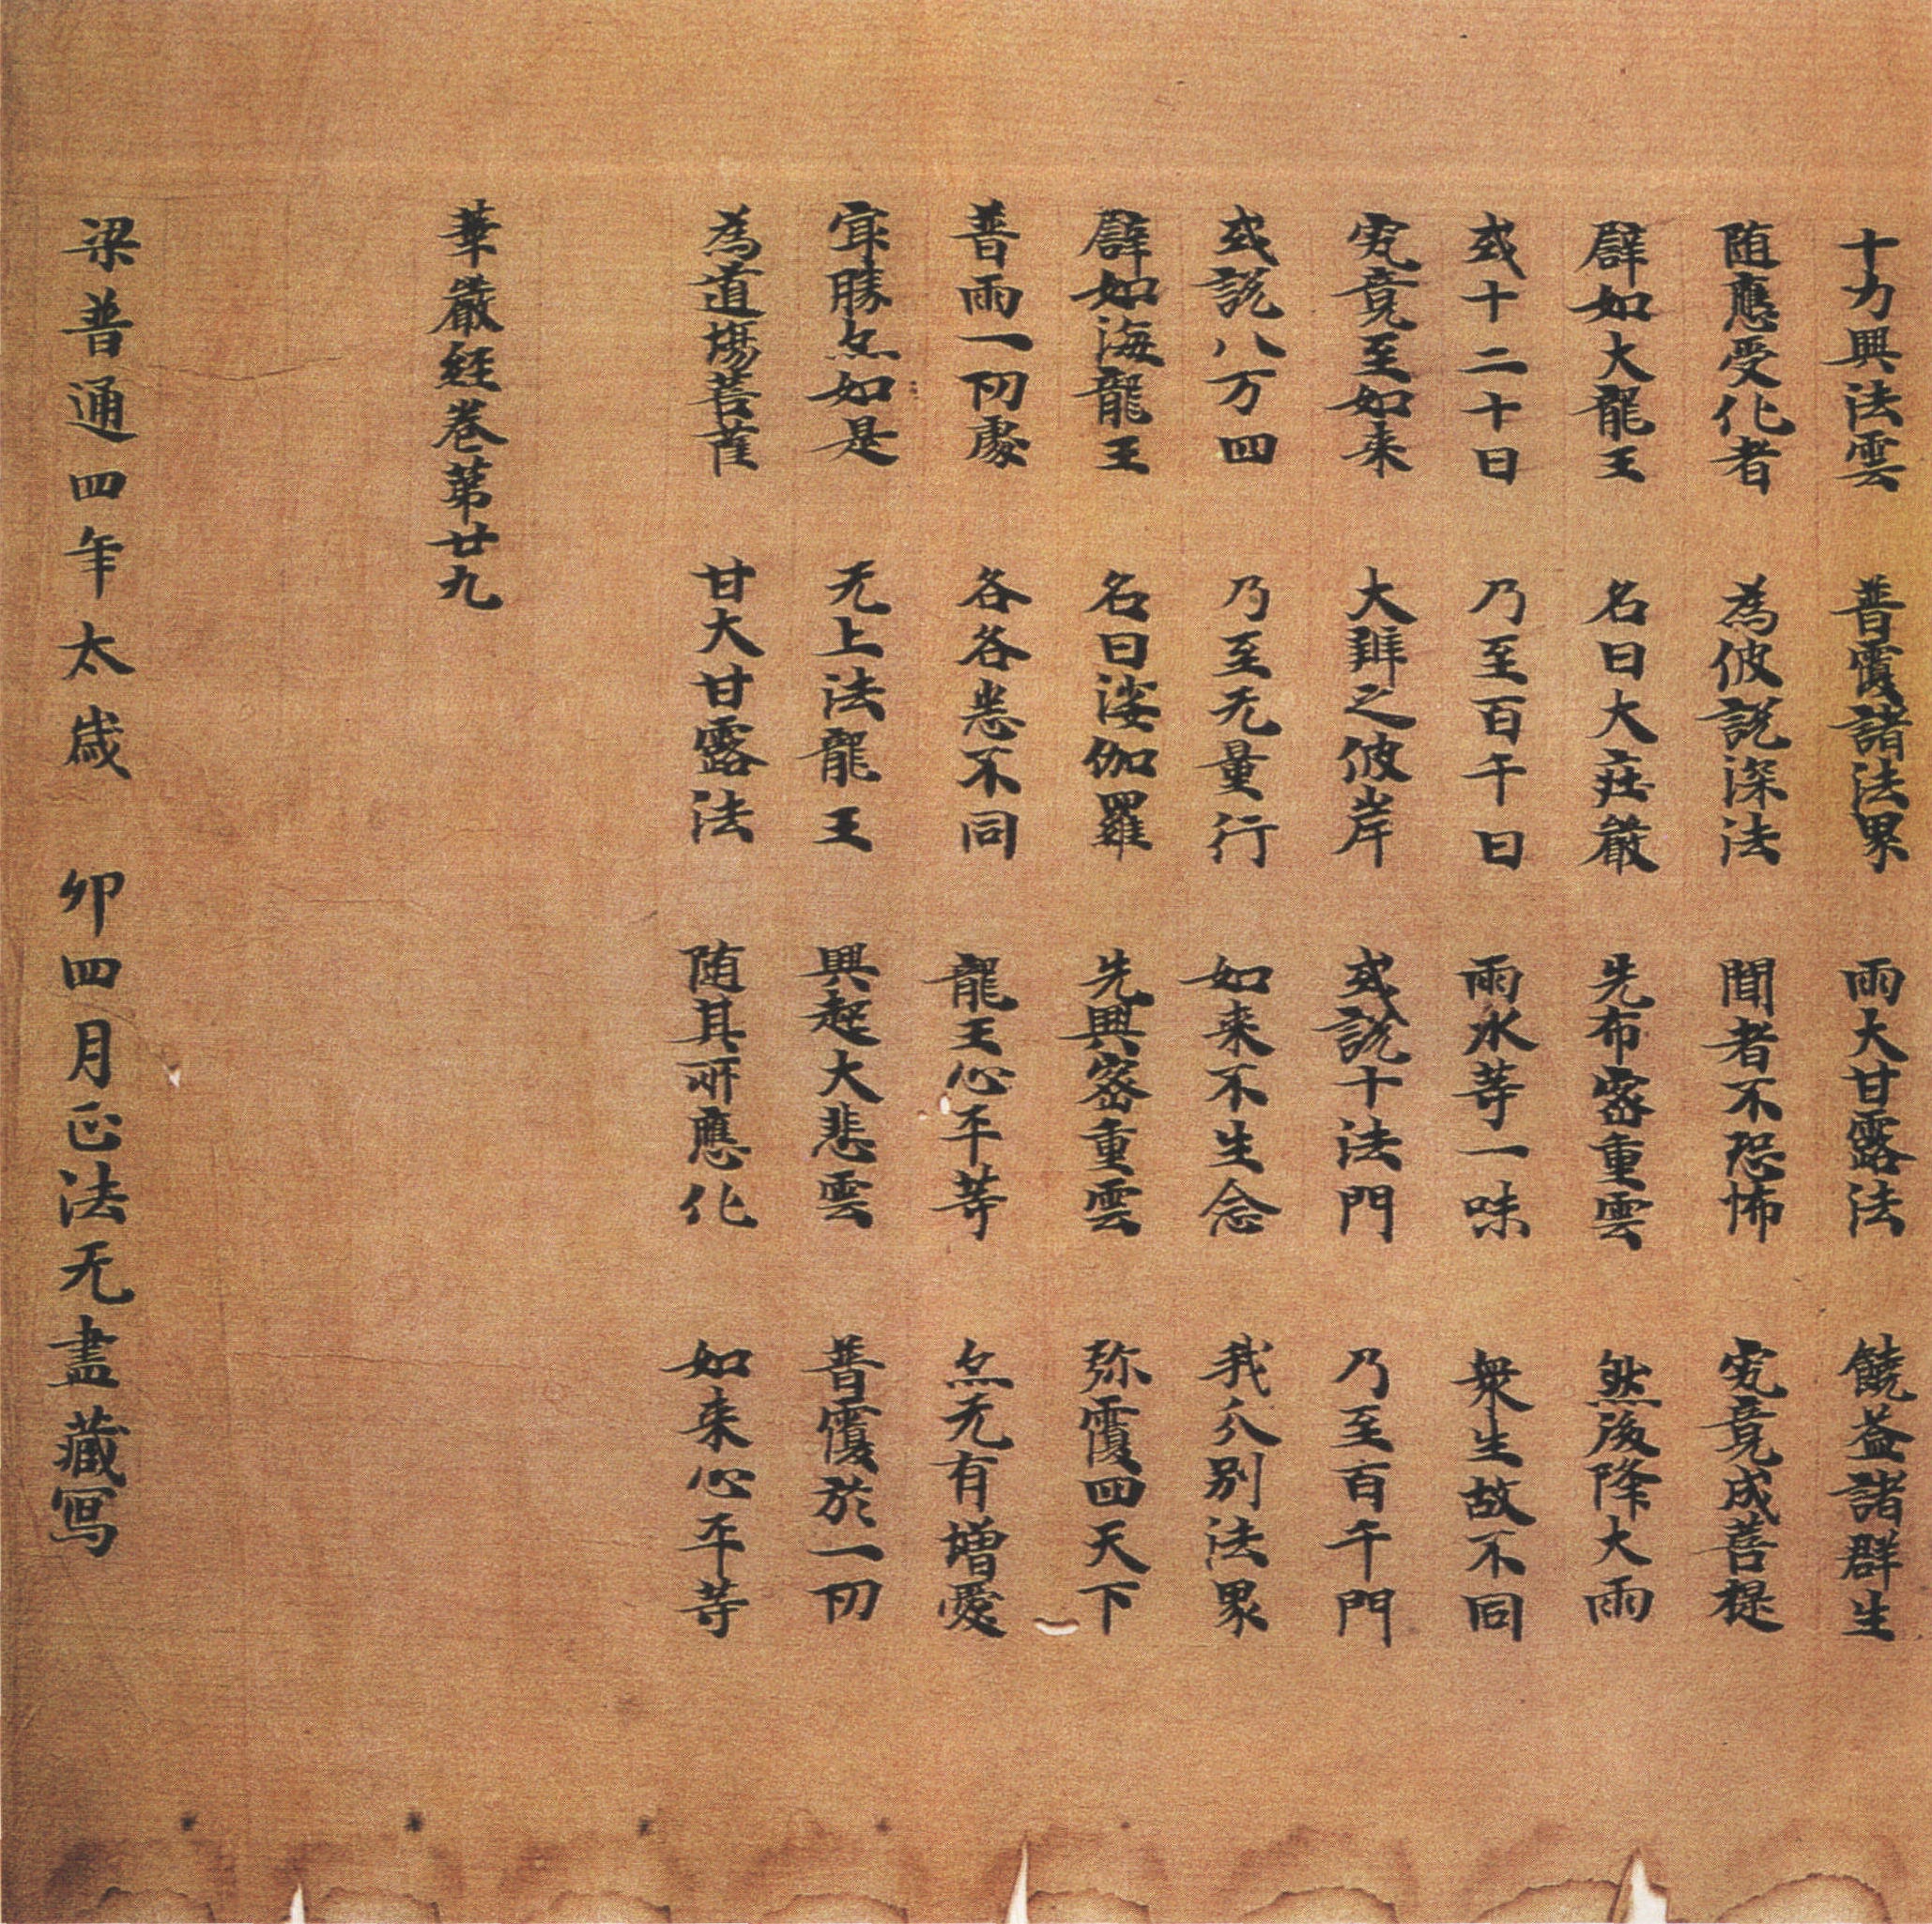 十力興法雲 普覆諸法界 雨大甘露法 饒益諸群生
随應受化者 為彼説深法 聞者不恐怖 究竟成菩提
譬如大龍王 名曰大庄嚴 先布密重雲 然後降大雨
或十二十日 乃至百千日 雨水等一味 衆生故不同
究竟至如来 大辯之彼岸 或説十法門 乃至百千門
或説八万四 乃至无量行 如来不生念 我分别法界
譬如海龍王 名曰娑伽羅 先興密重雲 弥覆四天下
普雨一切處 各各悉不同 龍王心平等 亦无有增愛
㝡勝亦如是 无上法龍王 興起大悲雲 普覆於一切
為道場菩萨 甘大甘露法 随其所應化 如来心平等
華嚴経卷第廿九
梁普通四年太歳 卯四月正法无盡藏寫